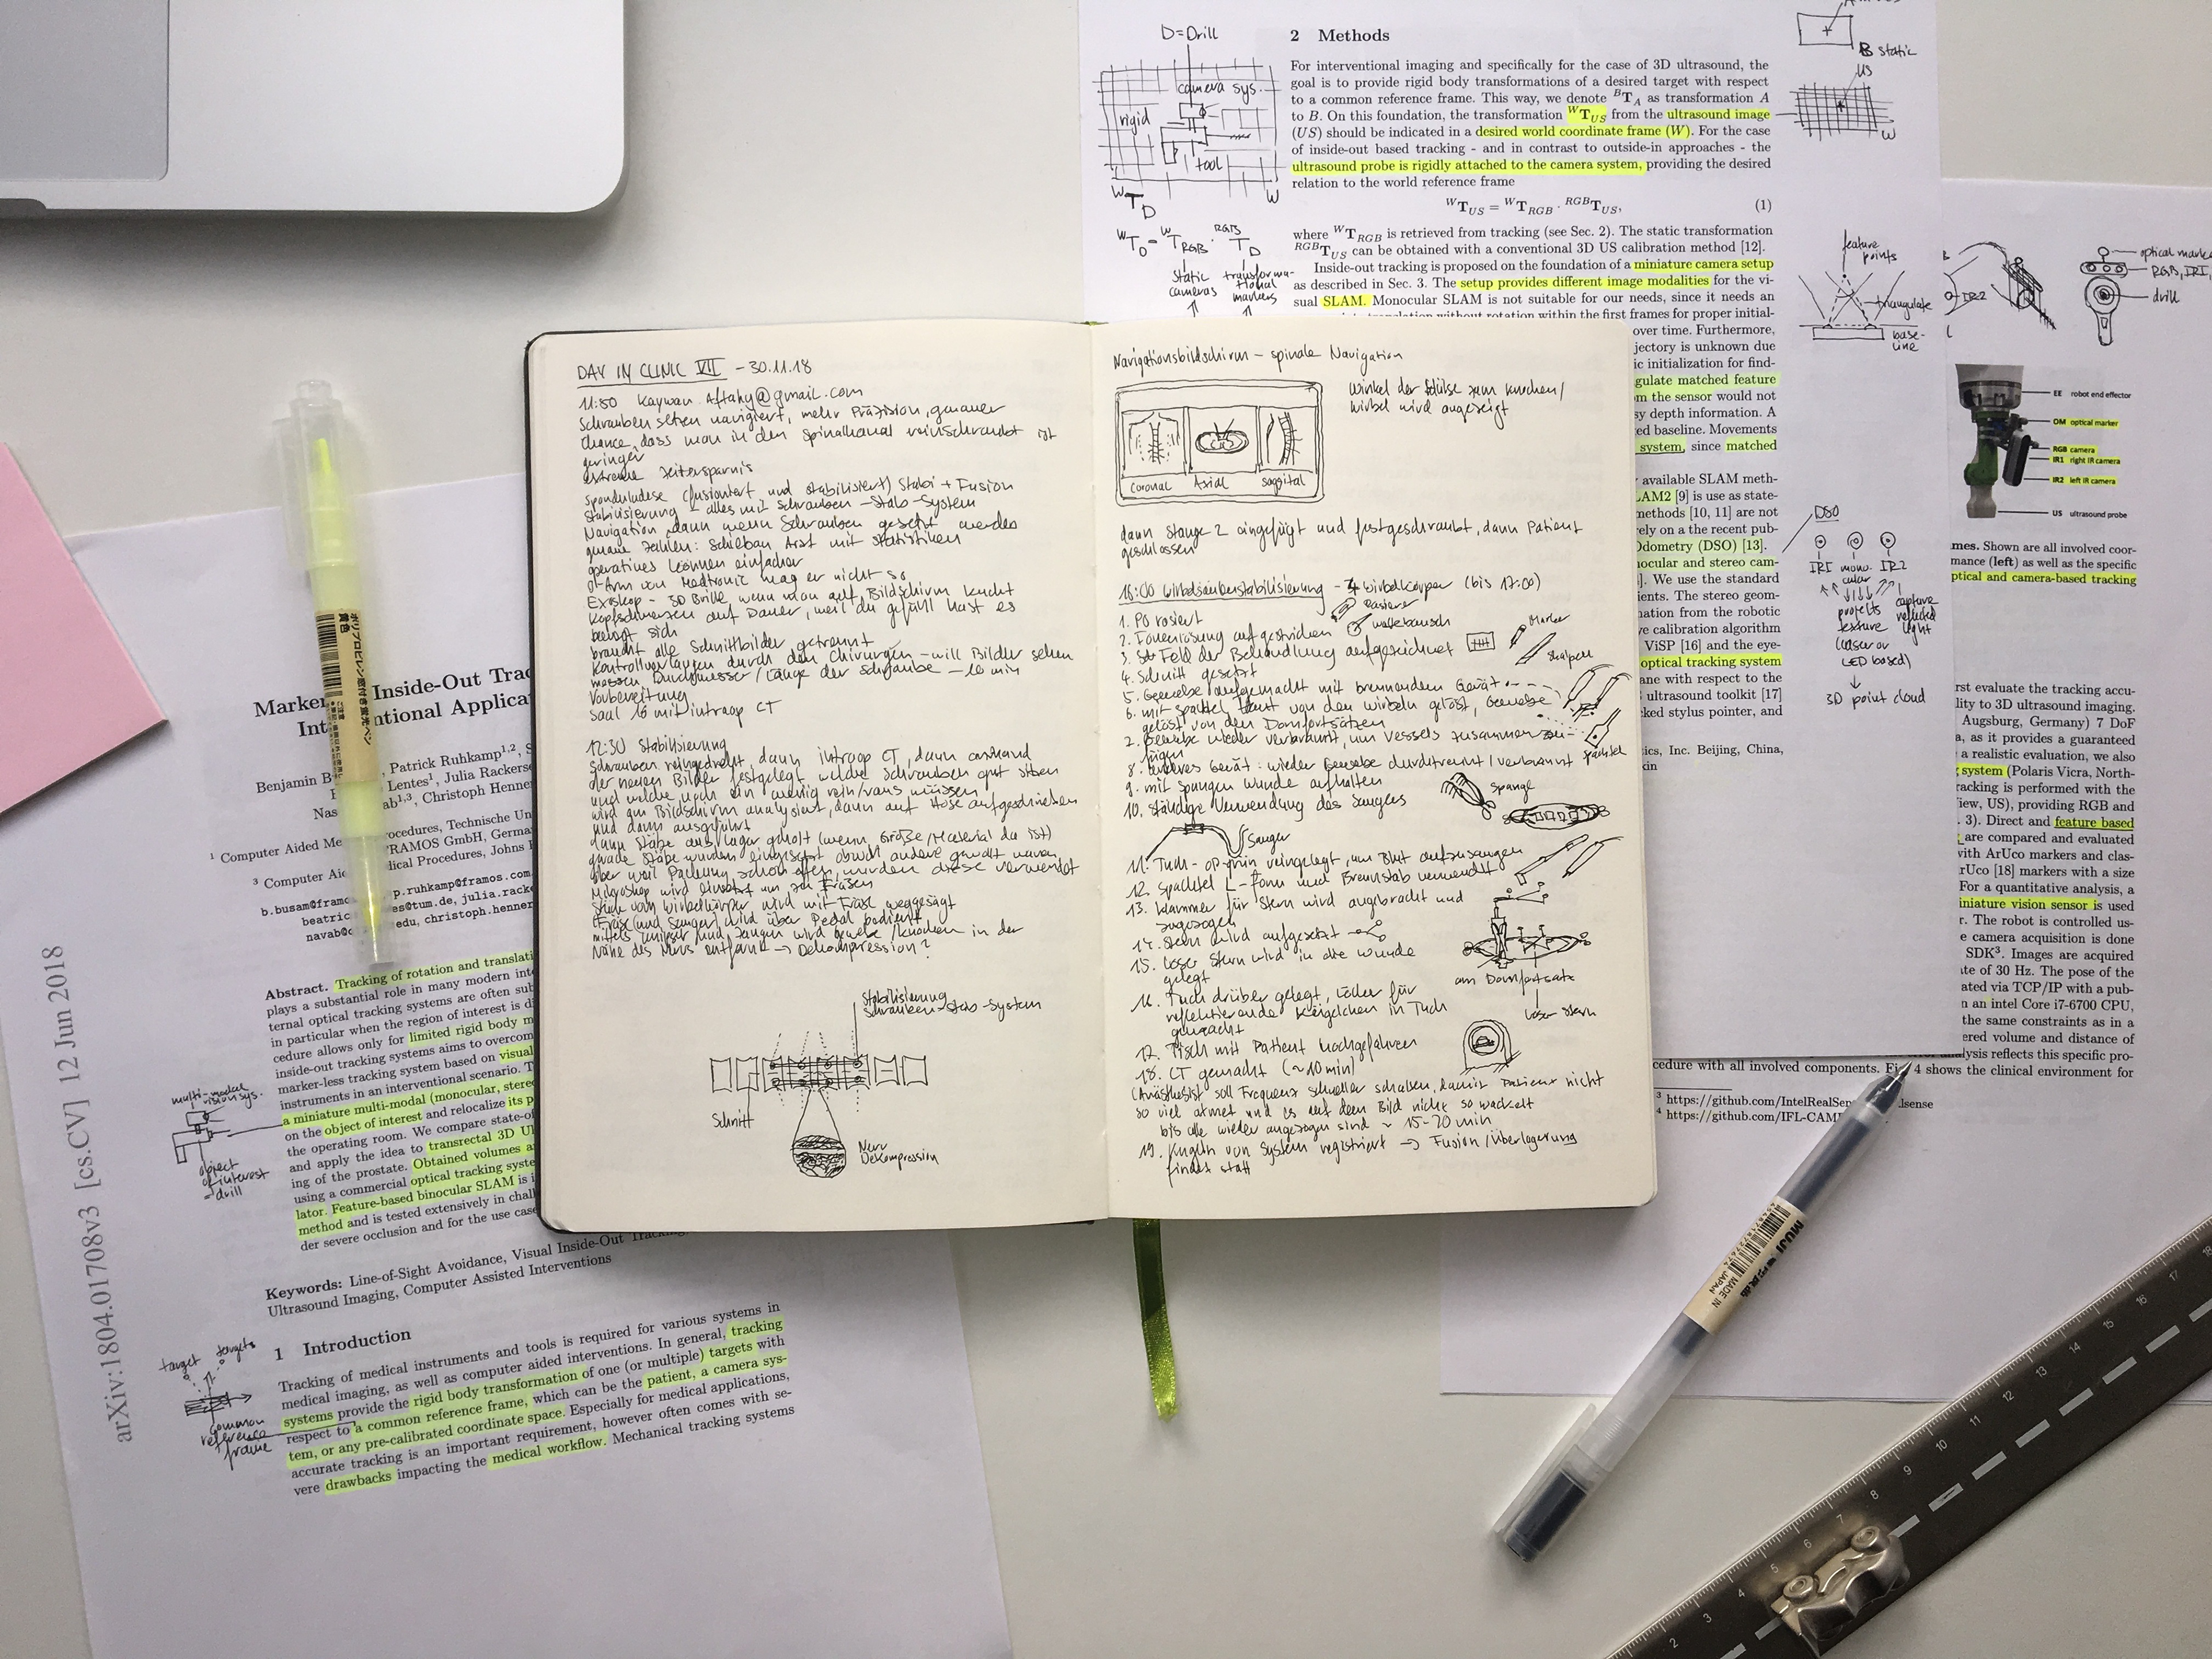 DAY IN CLINIC VII - 30.11.18
11:50 Kaywan Aftahy@gmail.com
Schrauben setzen navigiert, mehr Präzision, genauer
Chance, dass man in den Spinalkanal reinschraubt ist
geringer
extreme Zeitersparnis
(fusioniert und stabilisiert) Stabi + Fusion
Stabilisierung - alles mit Schrauben-Stab-System
Navigation dann wenn Schrauben gesetzt werden
genaue Zahlen: Arzt mit Statistiken
operatives können einfacher
O-Arm von Medtronic mag er nicht so
Exoskop - 3D Brille wenn man auf Bildschirm kuckt
Kopfschmerzen auf Dauer, weil du gefühl hast es
bewegt sich
braucht alle Schnittbilder getrennt
durch den Chirurgen - will Bilder sehen
messen Durchmesser/Länge der Schraube - 10 min
Vorbereitung
Saal 16 mit intraop CT
12:30 Stabilisierung
Schrauben reingedreht, dann intraop CT, dann anhand
der neuen Bilder festgelegt welche Schrauben gut sitzen
und welche noch ein wenig rein/raus müssen
wird am Bildschirm analysiert, dann auf Hose aufgeschrieben
und dann ausgeführt
dann Stäbe aus Lager geholt (wenn Größe/Material da ist)
gerade Stäbe wurden eingesetzt obwohl andere gewollt waren
aber weil Packung schon offen, wurden diese verwendet
Mikroskop wird einsetzt um zu Fräsen
Stück vom Wirbelkörper wird mit Fräse weggesägt
(Fräse und Sauger) wird über Pedal bedient
mittels und Zangen wird Gewebe/Knochen in der
Nähe des Nervs entfernt → Dekompression?
Stabilisierung
Schrauben-Stab-System
Schnitt
Nerv
Dekompression
Navigationsbildschirm - spinale Navigation
Winkel der Hülse zum Knochen/
Wirbel wird angezeigt
Coronal Axial saggital
dann Stange 2 eingefügt und festgeschraubt, dann Patient
geschlossen
16:00 Wirbelsäulenstabilisierung - Wirbelkörper (bis 17:00)
1. PO rasiert
Rasierer
2. aufgestrichen
Wattebausch
3. Feld der Behandlung aufgezeichnet
Marker
4. Schnitt gesetzt
Skalpell
5. Gewebe aufgemacht mit brennenden Gerät
6. mit Spachtel Haut von den Wirbeln gelöst, Gewebe
gelöst von den Dornfortsätzen
Gewebe wieder verbrannt, um Vessels zusammenzu-
fügen
Spachtel
8. anderes Gerät: wieder Gewebe durchtrennt/verbrannt
9. mit Spangen Wunde aufhalten
Spange
10. ständige Verwendung des Saugers
Sauger
11. Tuch - OP-grün reingelegt, um Blut aufzusaugen
12. Spachtel L-Form und Brennstab verwendet
13. Klammer für Stern wird angebracht und
zugezogen
14. Stern wird aufgesetzt
15. loser Stern wird in die Wunde
gelegt
am Dornfortsatz
loser Stern
16. Tuch drüber gelegt, Löcher für
reflektierende Kügelchen in Tuch
gemacht
17. Tisch mit Patient hochgefahren
18. CT gemacht (~10min)
(Anästhesist soll Frequenz schneller schalten, damit Patient nicht
so viel atmet und es auf dem Bild nicht so wackelt
bis alle wieder angezogen sind ~ 15-20 min
19. Kugeln von System registriert → Fusion/Überlagerung
findet statt
D=Drill
camera sys.
rigid
tool
W
WTD
WTD = WTRGB · RGBTD
static cameras
transforma-
tional
markers
2 Methods
For interventional imaging and specifically for the case of 3D ultrasound, the
goal is to provide rigid body transformations of a desired target with respect
to a common reference frame. This way, we denote BTA as transformation A
to B. On this foundation, the transformation WTUS from the ultrasound image
(US) should be indicated in a desired world coordinate frame (W). For the case
of inside-out based tracking - and in contrast to outside-in approaches - the
ultrasound probe is rigidly attached to the camera system, providing the desired
relation to the world reference frame
WTUS = WTRGB · RGBTUS, (1)
where WTRGB is retrieved from tracking (see Sec. 2). The static transformation
RGBTUS can be obtained with a conventional 3D US calibration method [12].
Inside-out tracking is proposed on the foundation of a miniature camera setup
as described in Sec. 3. The setup provides different image modalities for the vi-
sual SLAM. Monocular SLAM is not suitable for our needs, since it needs an
translation without rotation within the first frames for proper initial-
over time. Furthermore,
jectory is unknown due
ic initialization for find-
gulate matched feature
m the sensor would not
sy depth information. A
ed baseline. Movements
system, since matched
available SLAM meth-
LAM2 [9] is use as state-
methods [10, 11] are not
rely on a the recent pub-
Odometry (DSO) [13].
nocular and stereo cam-
]. We use the standard
ients. The stereo geom-
nation from the robotic
ve calibration algorithm
ViSP [16] and the eye-
optical tracking system
ane with respect to the
ultrasound toolkit [17]
cked stylus pointer, and
tics, Inc. Beijing, China,
kin
B static
US
W
feature
points
triangulate
base-
line
DSO
IR1 mono- IR2
cular
projects
texture
(laser or
LED based)
capture
reflected
light
3D point cloud
IR2
optical marke
RGB, IR1,
drill
EE robot end effector
OM optical marker
RGB camera
IR1 right IR camera
IR2 left IR camera
US ultrasound probe
mes. Shown are all involved coor-
mance (left) as well as the specific
ptical and camera-based tracking
rst evaluate the tracking accu-
lity to 3D ultrasound imaging.
Augsburg, Germany) 7 DoF
a, as it provides a guaranteed
a realistic evaluation, we also
system (Polaris Vicra, North-
racking is performed with the
iew, US), providing RGB and
. 3). Direct and feature based
are compared and evaluated
with ArUco markers and clas-
rUco [18] markers with a size
For a quantitative analysis, a
iniature vision sensor is used
r. The robot is controlled us-
e camera acquisition is done
SDK3. Images are acquired
te of 30 Hz. The pose of the
ated via TCP/IP with a pub-
n an intel Core i7-6700 CPU,
the same constraints as in a
ered volume and distance of
alysis reflects this specific pro-
cedure with all involved components. Fig. 4 shows the clinical environment for
3 https://github.com/IntelRealSen lsense
4 https://github.com/IFL-CAM
Marke Inside-Out Trac
Int ntional Applica
Benjamin B , Patrick Ruhkamp1,2, S
Lentes1, Julia Rackers
Nas ab1,3, Christoph Henner
1 Computer Aided Me rocedures, Technische Un
FRAMOS GmbH, Germa
3 Computer Aid dical Procedures, Johns
b.busam@framo p.ruhkamp@framos.com
beatric es@tum.de, julia.racke
navab@c edu, christoph.henner
Abstract. Tracking of rotation and translati
plays a substantial role in many modern int
ternal optical tracking systems are often sub
in particular when the region of interest is di
cedure allows only for limited rigid body m
inside-out tracking systems aims to overcom
marker-less tracking system based on visual
instruments in an interventional scenario. T
a miniature multi-modal (monocular, stereo
on the object of interest and relocalize its p
the operating room. We compare state-of
and apply the idea to transrectal 3D Ul
ing of the prostate. Obtained volumes a
using a commercial optical tracking syste
lator. Feature-based binocular SLAM is i
method and is tested extensively in chall
der severe occlusion and for the use case
Keywords: Line-of-Sight Avoidance, Visual Inside-Out Tracking
Ultrasound Imaging, Computer Assisted Interventions
1 Introduction
Tracking of medical instruments and tools is required for various systems in
medical imaging, as well as computer aided interventions. In general, tracking
systems provide the rigid body transformation of one (or multiple) targets with
respect to a common reference frame, which can be the patient, a camera sys-
tem, or any pre-calibrated coordinate space. Especially for medical applications,
accurate tracking is an important requirement, however often comes with se-
vere drawbacks impacting the medical workflow. Mechanical tracking systems
arXiv:1804.01708v3 [cs.CV] 12 Jun 2018
multi-modal
vision sys.
object
of interest
=drill
target targets
common
reference
frame
ポリプロピレン蛍光ペン
黄色
MUJI
MADE IN
JAPAN
2 3 4 5 6 7 8 9 10 11 12 13 14 15 16 17 18